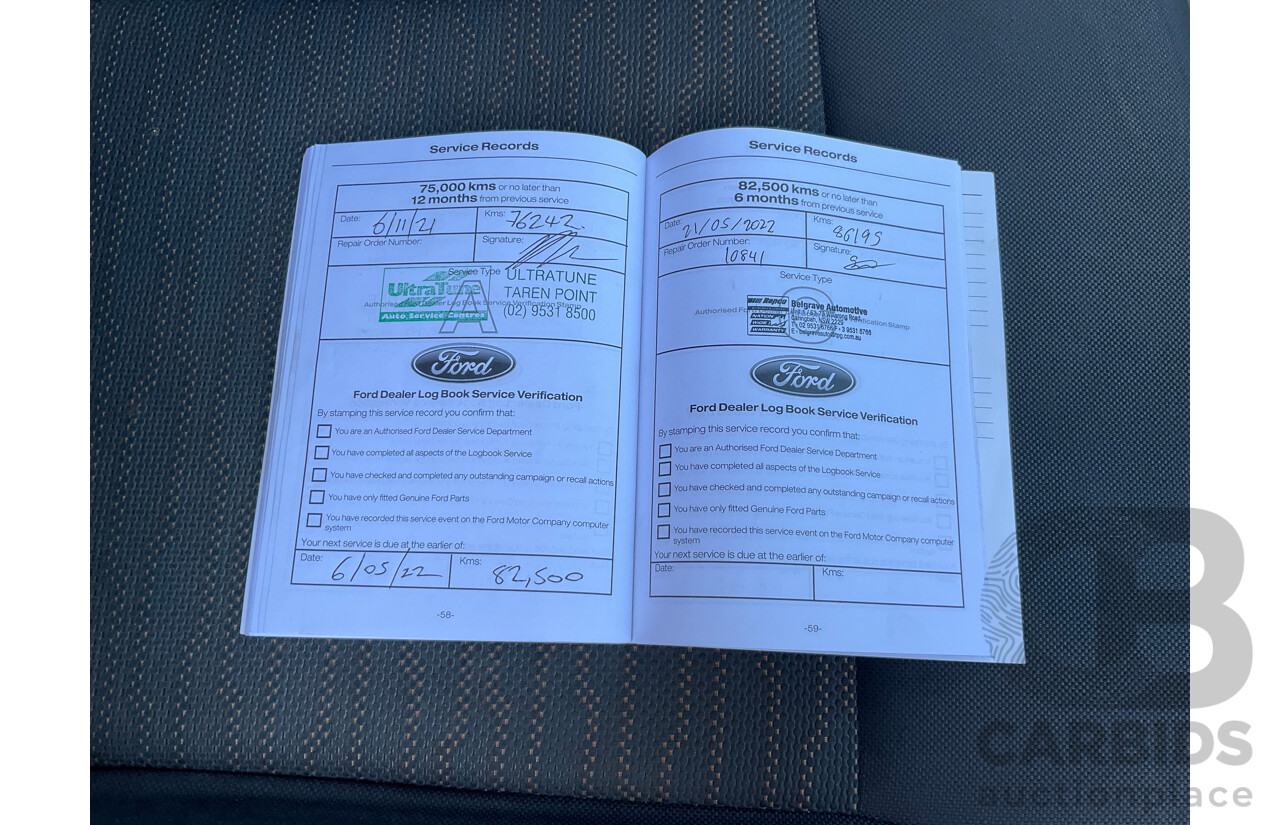 Service Records
75,000 kms or no later than
12 months from previous service
Date: 6/11/21
Kms: 76242.
Repair Order Number:
Signature:
Service Type
UltraTune
Auto Service Centres
ULTRATUNE
TAREN POINT
(02) 9531 8500
Authorised Ford Dealer Log Book Service Verification Stamp
A
Ford
Ford Dealer Log Book Service Verification
By stamping this service record you confirm that:
You are an Authorised Ford Dealer Service Department
You have completed all aspects of the Logbook Service
You have checked and completed any outstanding campaign or recall actions
You have only fitted Genuine Ford Parts
You have recorded this service event on the Ford Motor Company computer
system
Your next service is due at the earlier of:
Date: 6/05/22
Kms: 82,500
-58-
Service Records
82,500 kms or no later than
6 months from previous service
Date: 21/05/2022
Kms: 86195
Repair Order Number: 10841
Signature:
Service Type
Authorised Verification Stamp
Repco
NATION
WIDE
WARRANTY
Belgrave Automotive
Caringbah, NSW 2229
Ford
Ford Dealer Log Book Service Verification
By stamping this service record you confirm that:
You are an Authorised Ford Dealer Service Department
You have completed all aspects of the Logbook Service
You have checked and completed any outstanding campaign or recall actions
You have only fitted Genuine Ford Parts
You have recorded this service event on the Ford Motor Company computer
system
Your next service is due at the earlier of:
Date:
Kms:
-59-
B
CARBIDS
auctionplace